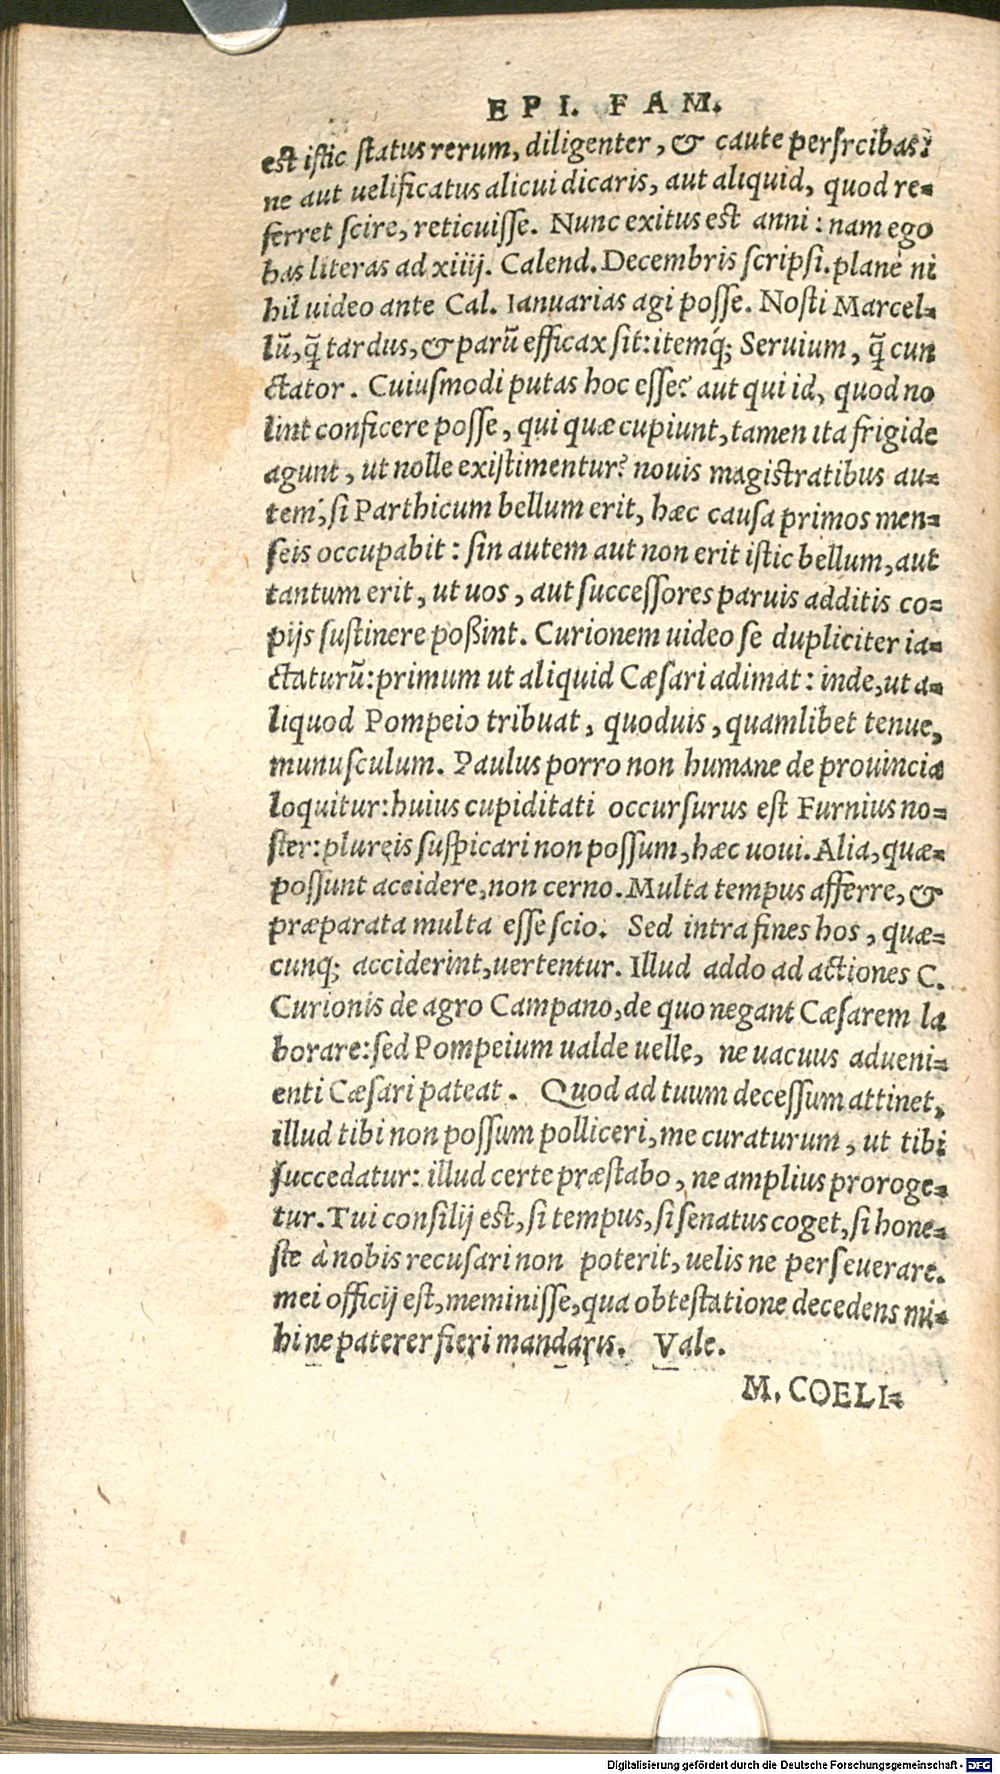 EPI. FAM.
est istic status rerum, diligenter, & caute persrcibas:
ne aut uelificatus alicui dicaris, aut aliquid, quod re-
ferret scire, reticuisse. Nunc exitus est anni: nam ego
has literas ad xiiij. Calend. Decembris scripsi. planè ni
hil uideo ante Cal. Ianuarias agi posse. Nosti Marcel-
lū, q̄ tardus, & parū efficax sit: itemq́; Seruium, q̄ cun
ctator. Cuiusmodi putas hoc esse? aut qui id, quod no
lint conficere posse, qui quæ cupiunt, tamen ita frigide
agunt, ut nolle existimentur? nouis magistratibus au-
tem, si Parthicum bellum erit, hæc causa primos men-
seis occupabit: sin autem aut non erit istic bellum, aut
tantum erit, ut uos, aut successores paruis additis co-
pijs sustinere poßint. Curionem uideo se dupliciter ia-
ctaturū: primum ut aliquid Cæsari adimat: inde, ut a-
liquod Pompeio tribuat, quoduis, quamlibet tenue,
munusculum. Paulus porro non humane de prouincia
loquitur: huius cupiditati occursurus est Furnius no-
ster: plureis suspicari non possum, hæc noui. Alia, quæ-
possunt accidere, non cerno. Multa tempus afferre, &
præparata multa esse scio. Sed intra fines hos, quæ-
cunq; acciderint, uertentur. Illud addo ad actiones C.
Curionis de agro Campano, de quo negant Cæsarem la
borare: sed Pompeium ualde uelle, ne uacuus adueni-
enti Cæsari pateat. Quod ad tuum decessum attinet,
illud tibi non possum polliceri, me curaturum, ut tibi
succedatur: illud certe præstabo, ne amplius proroge-
tur. Tui consilij est, si tempus, si senatus coget, si hone-
ste à nobis recusari non poterit, uelis ne perseuerare.
mei officij est, meminisse, qua obtestatione decedens mi-
hi ne paterer fieri mandaris. Vale.
M. COELI-
Digitalisierung gefördert durch die Deutsche Forschungsgemeinschaft - DFG